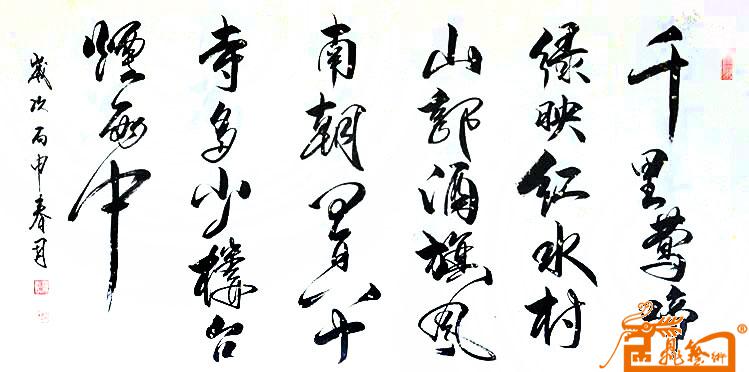 千里鶯啼
绿映红水村
山郭酒旗風
南朝四百八十
寺多少樓台
煙雨中
歲次丙申春月
藝術®